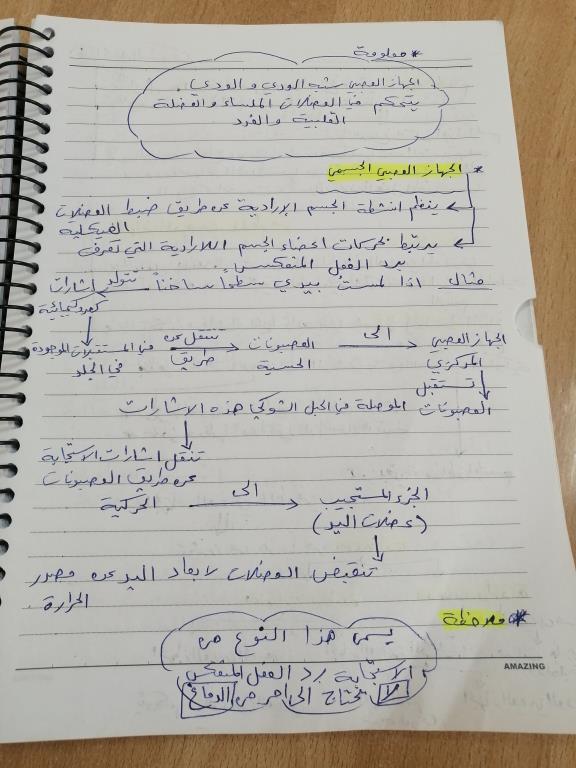 * معلومة
الجهاز العصبي شبه الودي و الودي
يتحكم في العضلات الملساء والعضلة
القلبية و الغدد
* الجهاز العصبي الجسمي
ينظم انشطة الجسم الإرادية عن طريق ضبط العضلات
الهيكلية
يرتبط بحركات اعضاء الجسم اللاارادية التي تعرف
برد الفعل المنعكس
مثال اذا لمست بيدي سطحا ساخنا تتولد اشارات
كهروكيميائية
في المستقبلات الموجودة في الجلد
تنتقل عن طريق
العصبونات الحسية
الى
الجهاز العصبي المركزي
تستقبل
العصبونات الموصلة في الحبل الشوكي هذه الاشارات
تنقل اشارات الاستجابة
عن طريق العصبونات
الحركية
الى
الجزء المستجيب
(عضلات اليد)
تنقبض العضلات لابعاد اليد عن مصدر
الحرارة
* ملاحظة
يسمى هذا النوع من
الاستجابة برد الفعل المنعكس
لا تحتاج الى امر من الدماغ
AMAZING